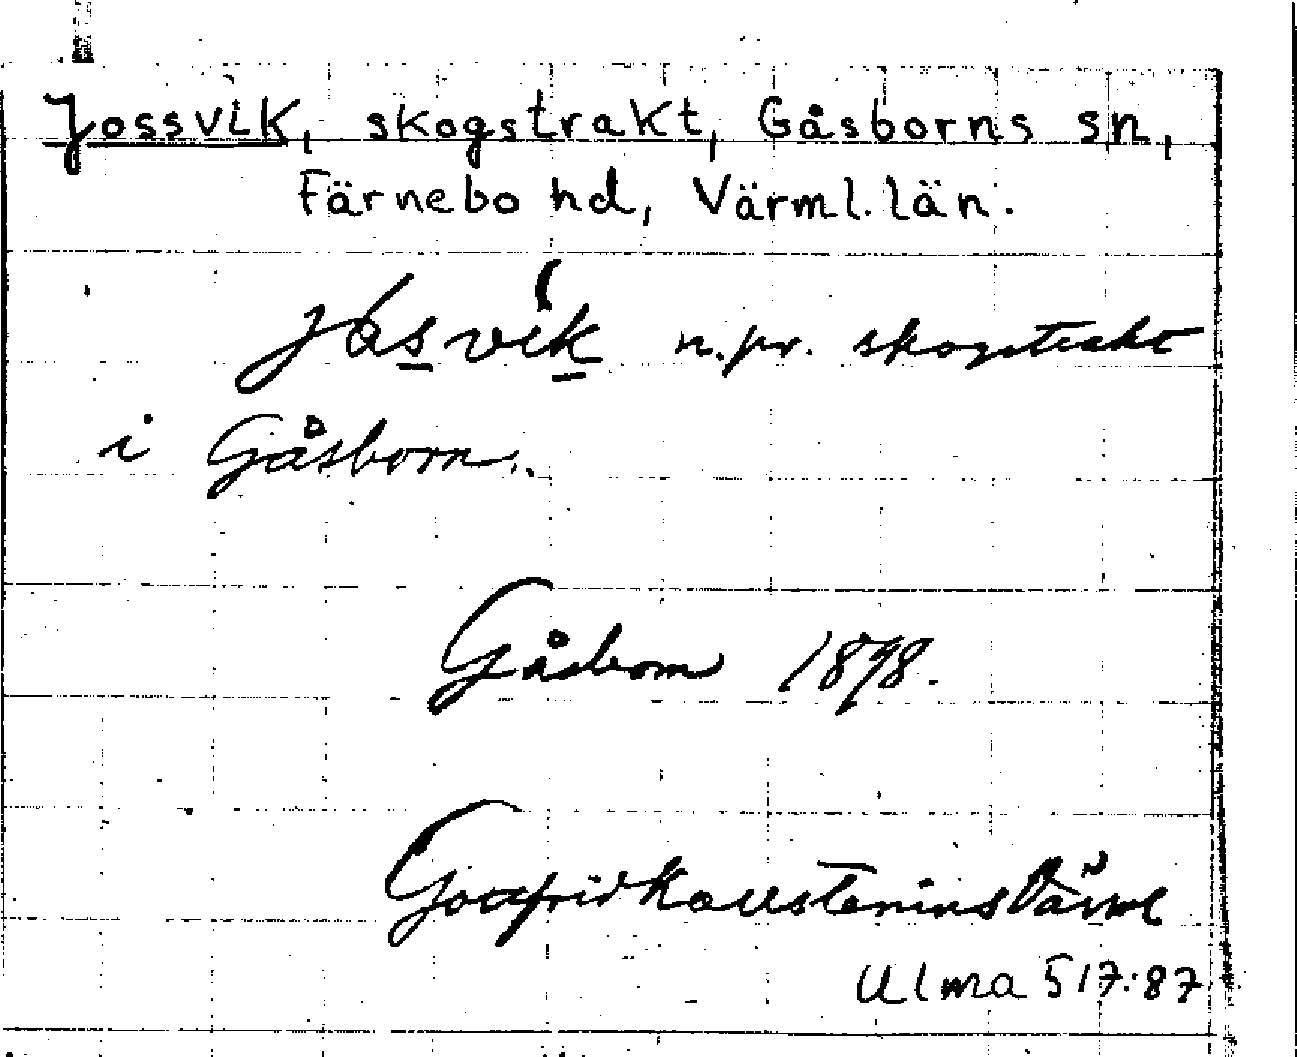 Jossvik, skogstrakt, Gåsborns sn,
Färnebo hd, Värml. län.
Jåsvik n.pr. skogstrakt
i Gåsborn.
Gåsborn 1898.
Gottfrid Kallstenius Värml
Ulma 517:87